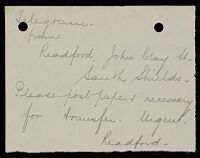 Telegram.
from
Readford, John Clay St.
South Shields.
Please post papers necessary
for transfer. Urgent.
Readford.